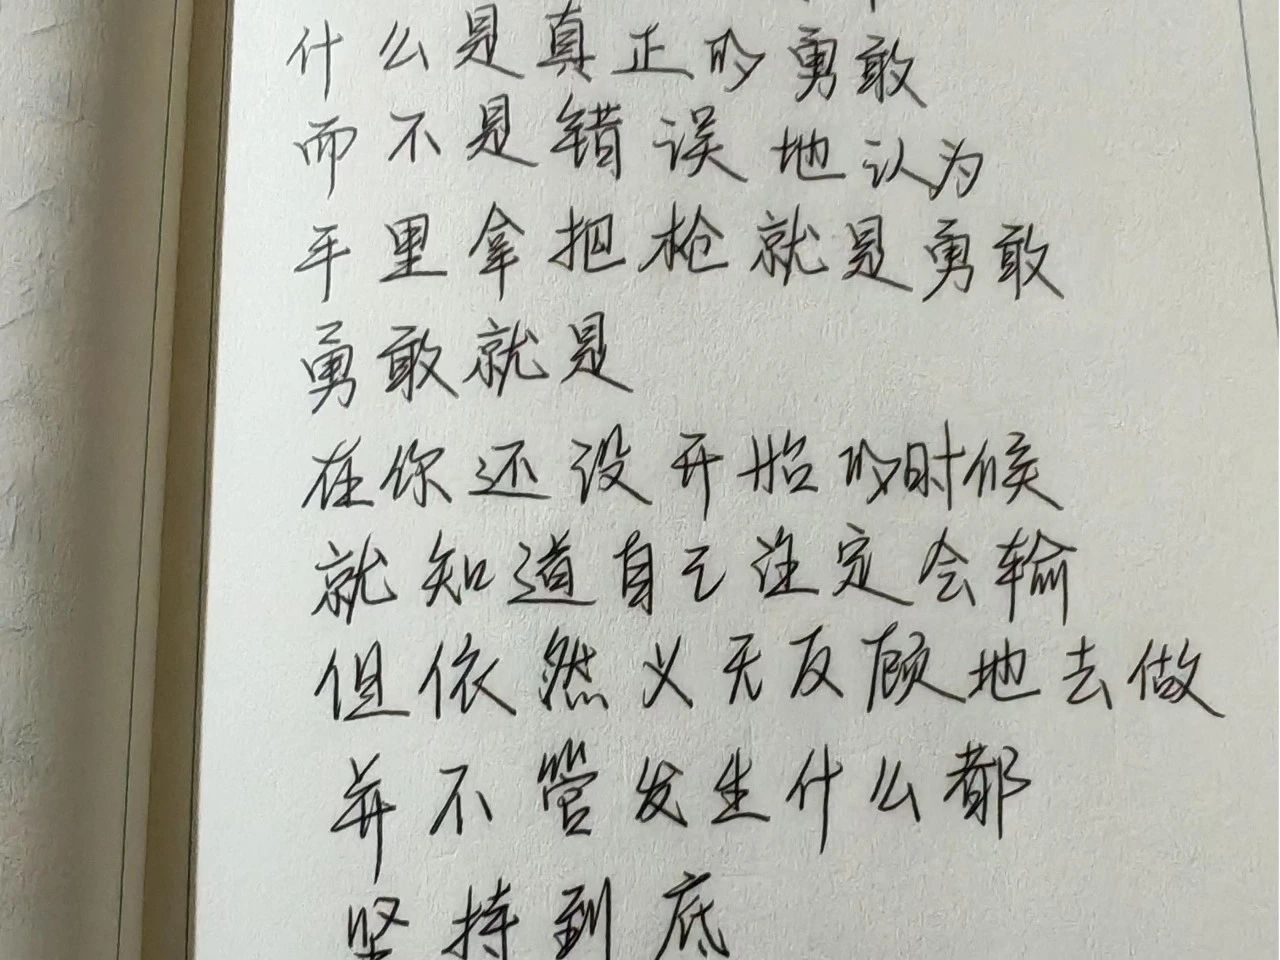 什么是真正的勇敢
而不是错误地认为
手里拿把枪就是勇敢
勇敢就是
在你还没开始的时候
就知道自己注定会输
但依然义无反顾地去做
并不管发生什么都
坚持到底